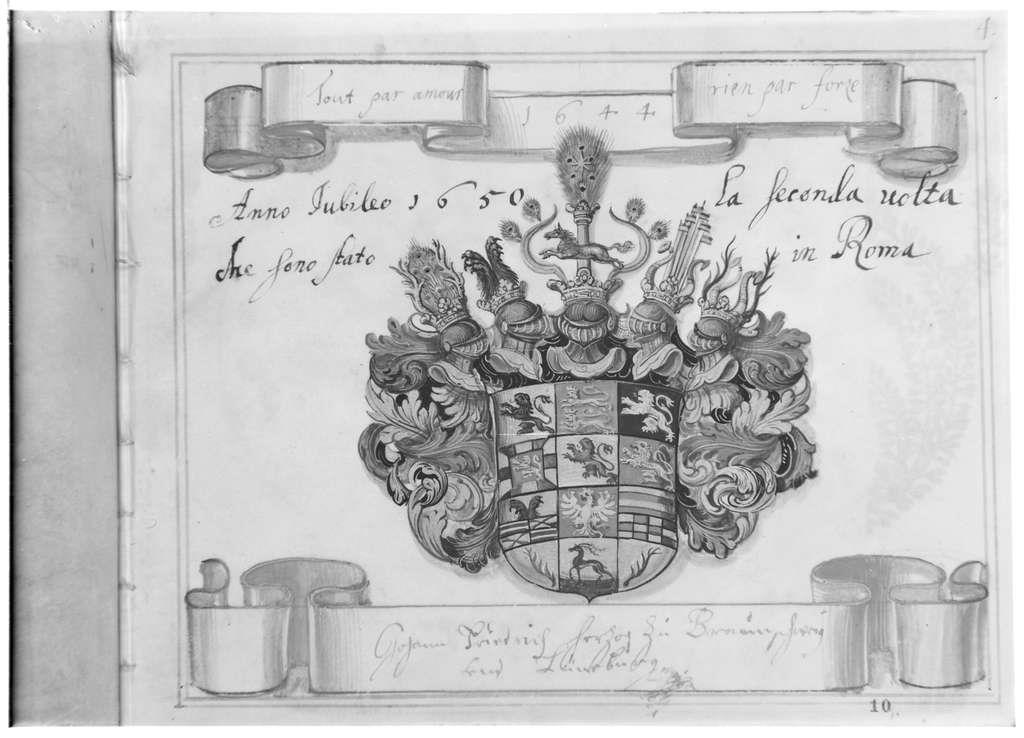 4.
Tout par amour rien par force
1644
Anno Jubileo 1650 La seconda uolta
che sono stato in Roma
Johann Friedrich Herzog zu Braunschweig
und Lüneburg
10